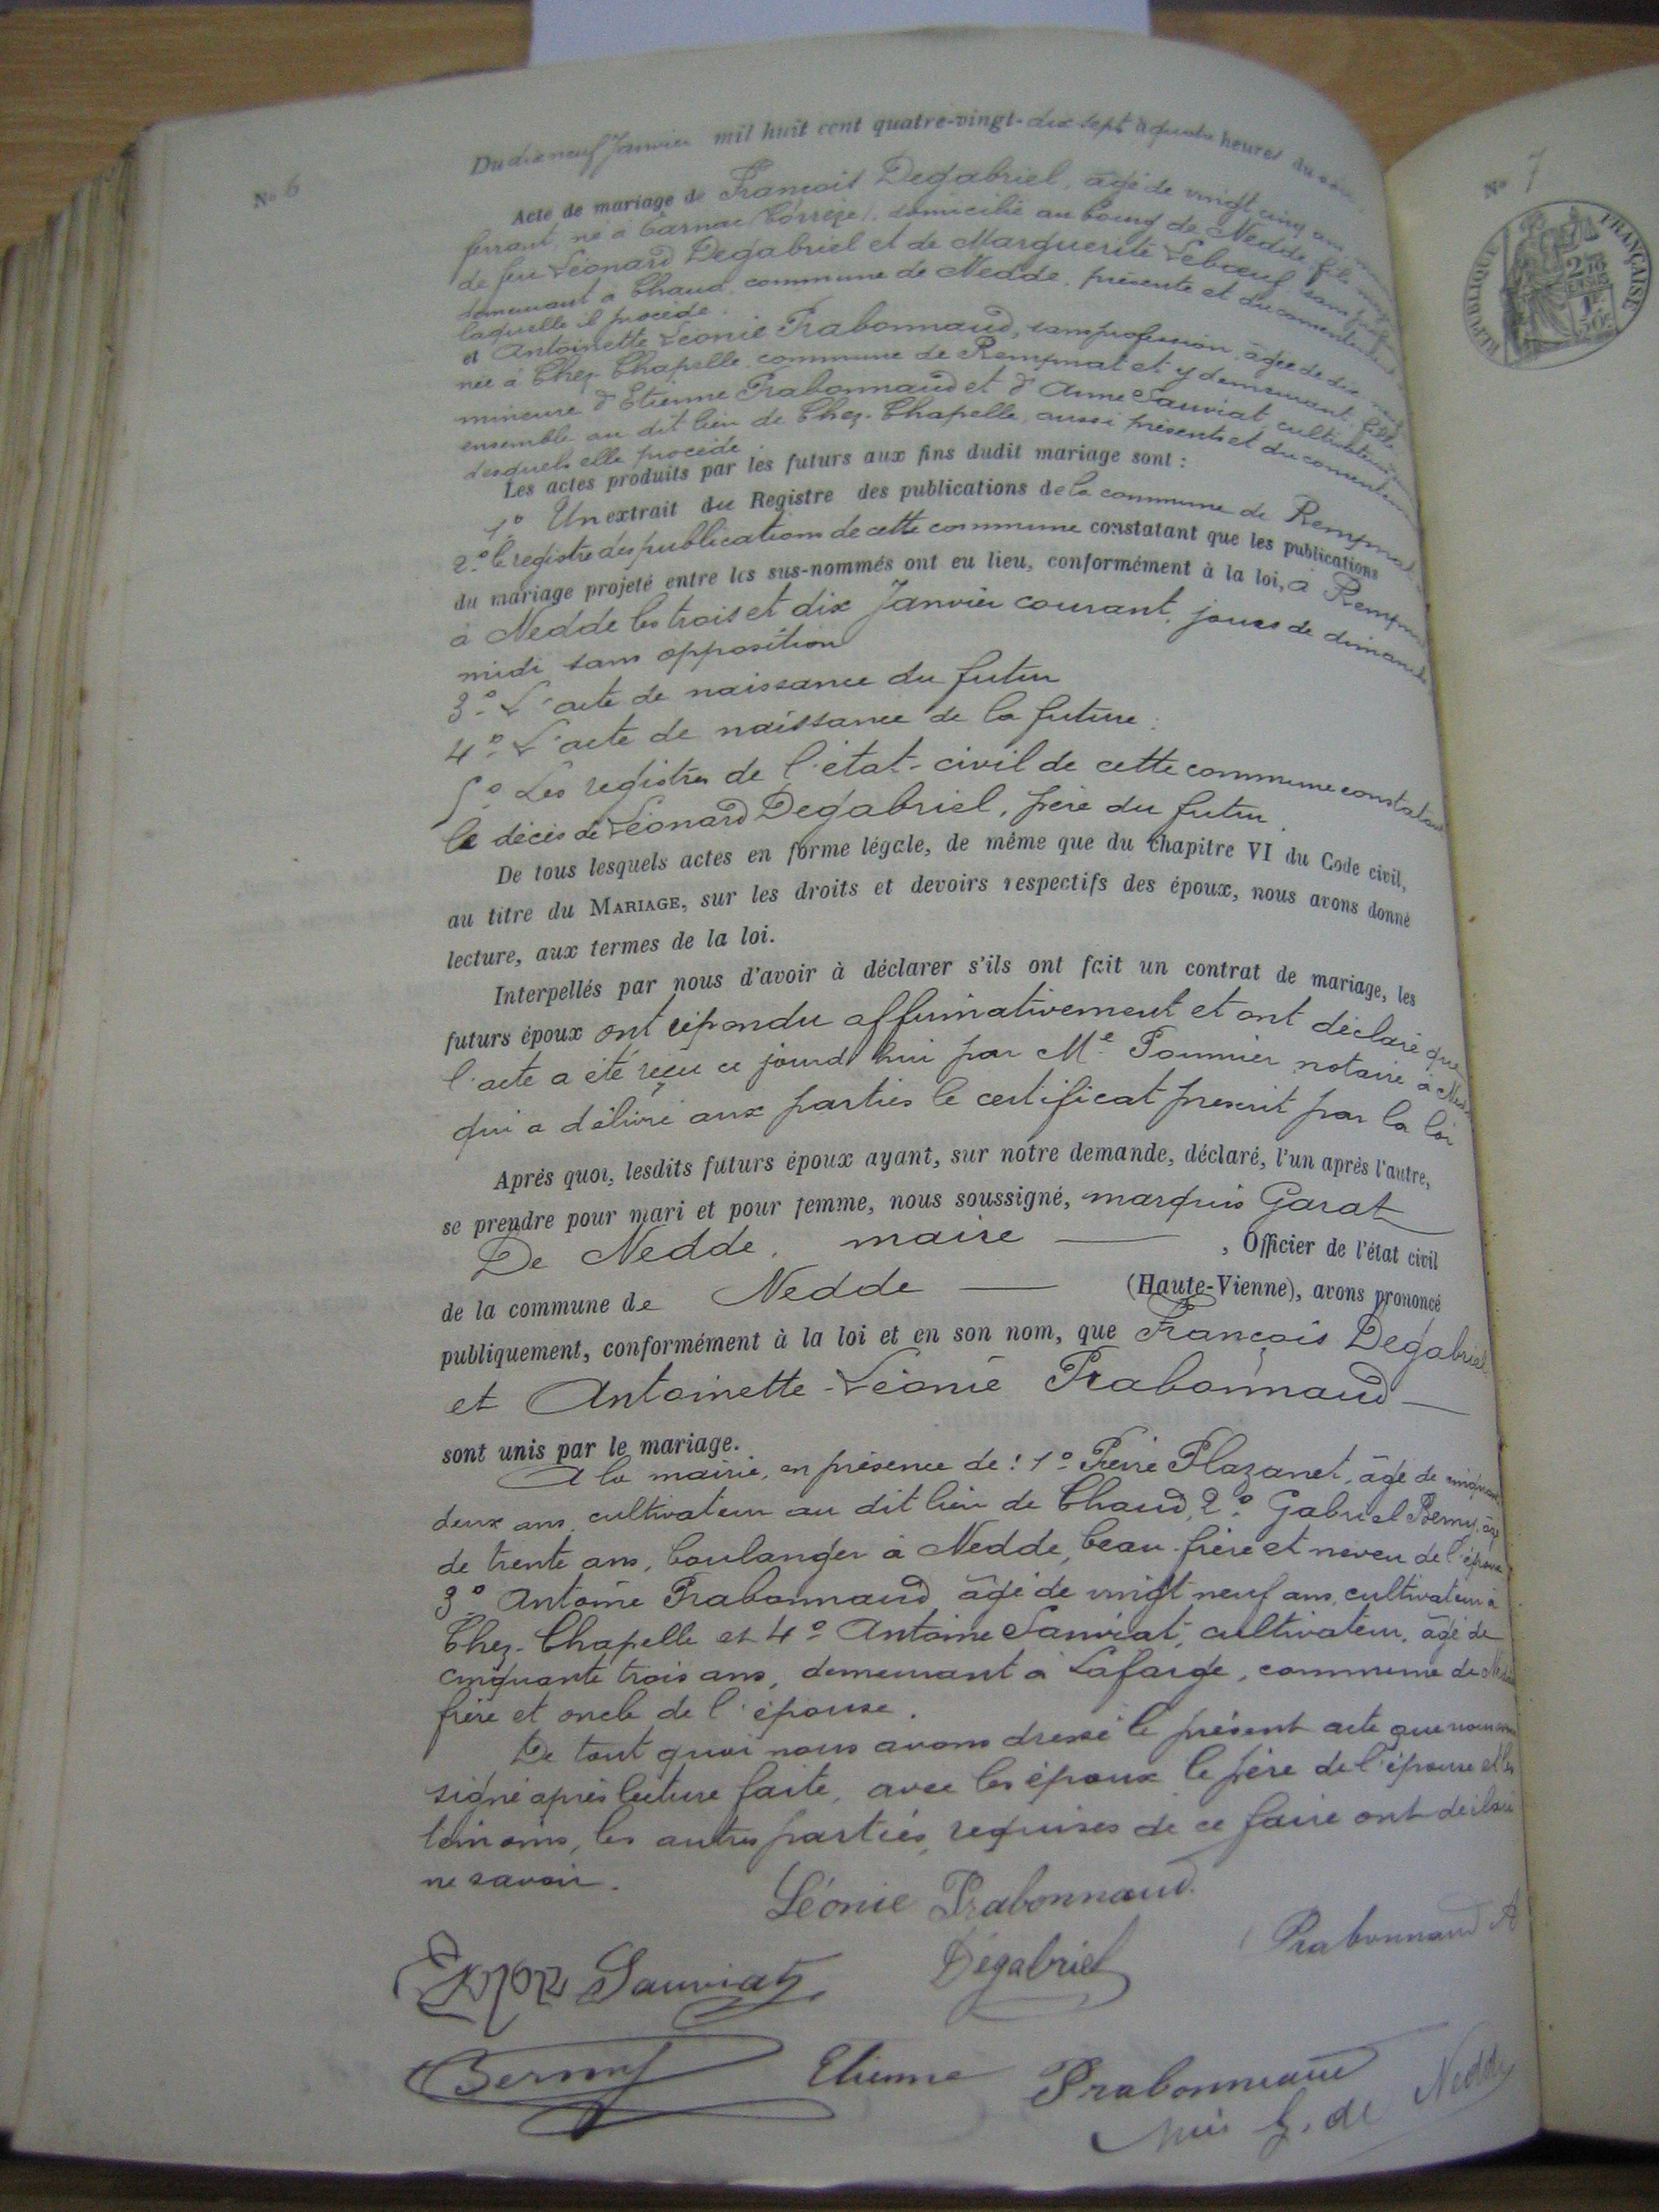 N° 6
Du dix neuf Janvier mil huit cent quatre-vingt-dix-sept à quatre heures du soir
Acte de mariage de François Degabriel, âgé de vingt cinq ans
né à Tarnac (Corrèze), domicilié au bourg de Nedde fils
de feu Léonard Degabriel et de Marguerite Leboeuf
demeurant à Chaud, commune de Nedde, présente et consentante
laquelle il procède.
et Antoinette Léonie Prabonnaud, sans profession, âgée de dix
née à Chez-Chapelle commune de Rempnat et y demeurant, fille
mineure d'Etienne Prabonnaud et d'Anne Sauviat, cultivateurs
ensemble au dit lieu de Chez-Chapelle, aussi présents et consentants
desquels elle procède.
Les actes produits par les futurs aux fins dudit mariage sont :
1° Un extrait du Registre des publications de la commune de Rempnat
2° le registre des publications de cette commune constatant que les publications
du mariage projeté entre les sus-nommés ont eu lieu, conformément à la loi, à Rempnat
à Nedde les trois et dix janvier courant, jours de dimanche
midi sans opposition
3° L'acte de naissance du futur
4° L'acte de naissance de la future.
5° Les registres de l'état-civil de cette commune constatant
le décès de Léonard Degabriel, père du futur.
De tous lesquels actes en forme légale, de même que du Chapitre VI du Code civil,
au titre du MARIAGE, sur les droits et devoirs respectifs des époux, nous avons donné
lecture, aux termes de la loi.
Interpellés par nous d'avoir à déclarer s'ils ont fait un contrat de mariage, les
futurs époux ont répondu affirmativement et ont déclaré que
l'acte a été reçu ce jourd'hui par Me Pommier notaire à
qui a délivré aux parties le certificat prescrit par la loi
Après quoi, lesdits futurs époux ayant, sur notre demande, déclaré, l'un après l'autre,
se prendre pour mari et pour femme, nous soussigné, marquis Garat
De Nedde, maire , Officier de l'état civil
de la commune de Nedde (Haute-Vienne), avons prononcé
publiquement, conformément à la loi et en son nom, que François Degabriel
et Antoinette-Léonie Prabonnaud
sont unis par le mariage.
A la mairie, en présence de : 1° Pierre Plazanet, âgé de cinquante
deux ans cultivateur au dit lieu de Chaud, 2° Gabriel Berny, âgé
de trente ans, boulanger à Nedde, beau-frère et neveu de l'époux
3° Antoine Prabonnaud âgé de vingt neuf ans, cultivateur à
Chez-Chapelle et 4° Antoine Sauviat, cultivateur, âgé de
cinquante trois ans, demeurant à Lafarge, commune de
frère et oncle de l'épouse.
De tout quoi nous avons dressé le présent acte que nous
signé après lecture faite, avec les époux, le père de l'épouse et les
témoins, les autres parties, requises de ce faire ont déclaré
ne savoir.
Léonie Prabonnaud Prabonnaud A
Sauviat Degabriel
Berny Etienne Prabonnaud
Mis G. de Nedde
N° 7
RÉPUBLIQUE FRANÇAISE
2/10 EN SUS
1F. 50c.